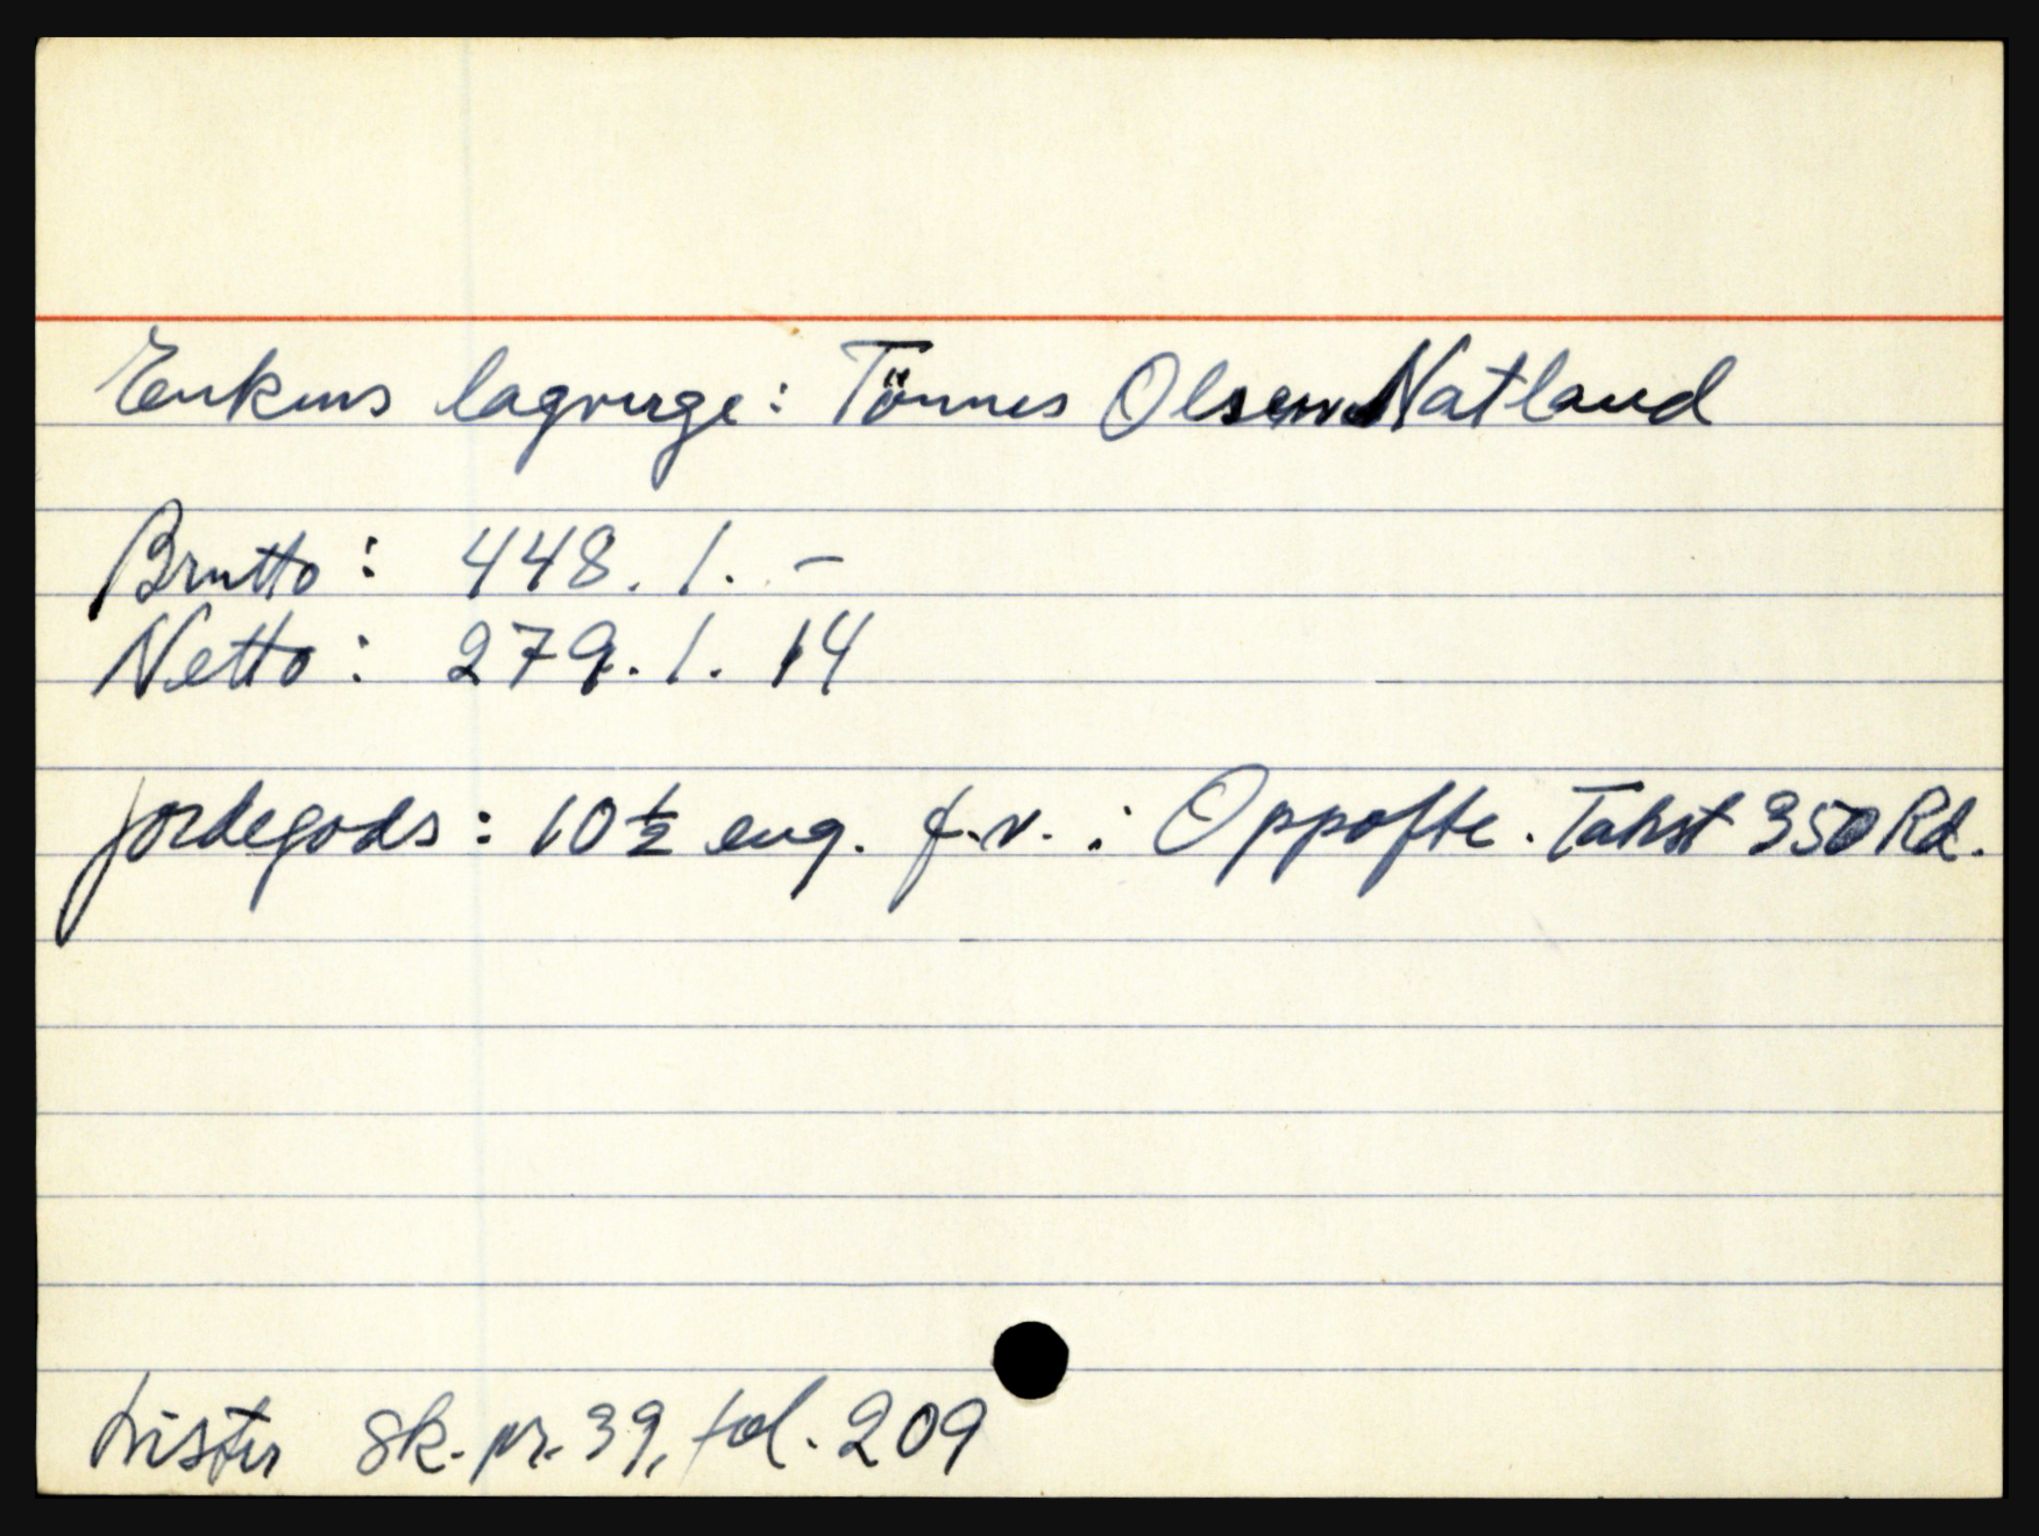 Enkens lagverge: Tönnes Olsen Natland
Brutto: 448. 1. –
Netto: 279. 1. 14
Jordegods: 10½ eng. f.v. i Oppofte. Takst 350 Rd.
Lister sk.pr. 39, fol. 209